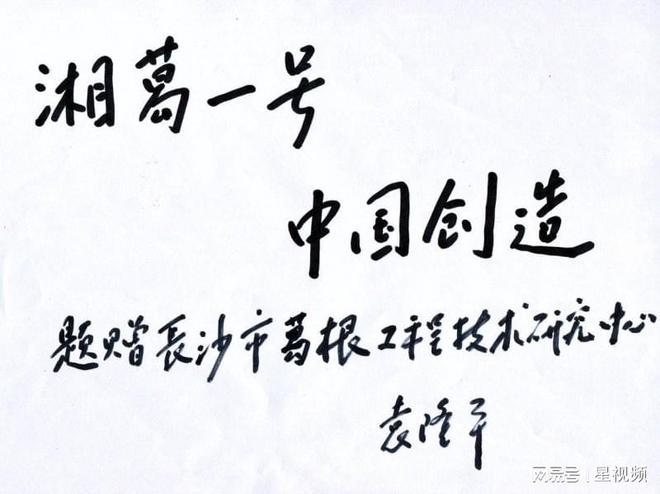 湘葛一号
中国创造
题赠長沙市葛根工程技术研究中心
袁隆平
搜狐号@星视频